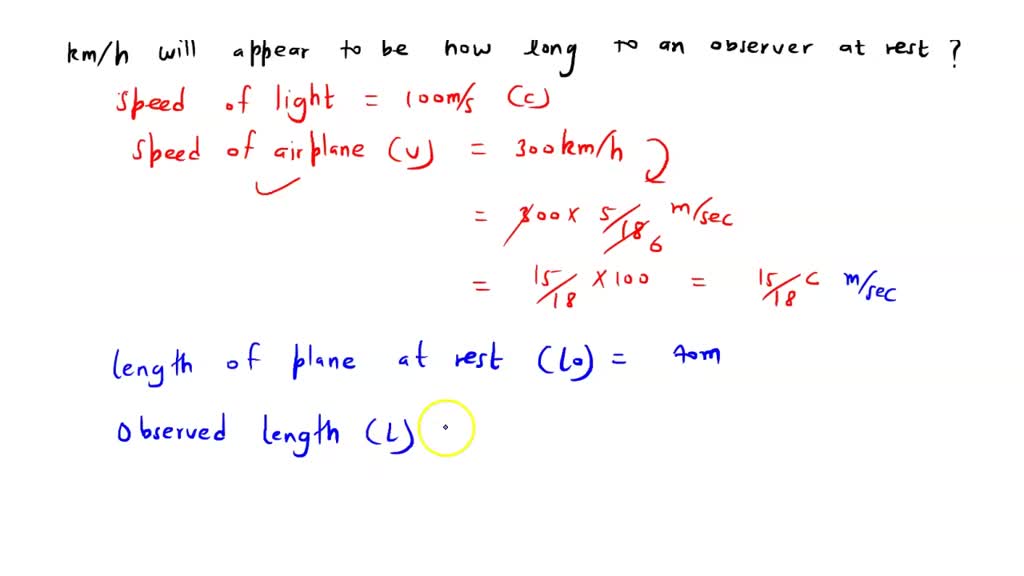 km/h will appear to be how long to an observer at rest ?
speed of light = 100m/s (c)
speed of airplane (v) = 300km/h
= 300 x 5/18 6 m/sec
= 15/18 x 100 = 15/18 c m/sec
length of plane at rest (lo) = 40m
Observed length (L)